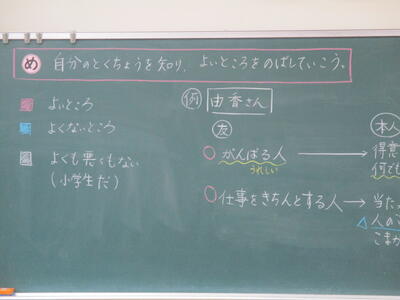 め 自分のとくちょうを知り、よいところをのばしていこう。
よいところ
よくないところ
よくも悪くもない
(小学生だ)
例 由香さん
友
○がんばる人
うれしい
○仕事をきちんとする人
本人
得意
何でも
当たっ
△人の
こまか